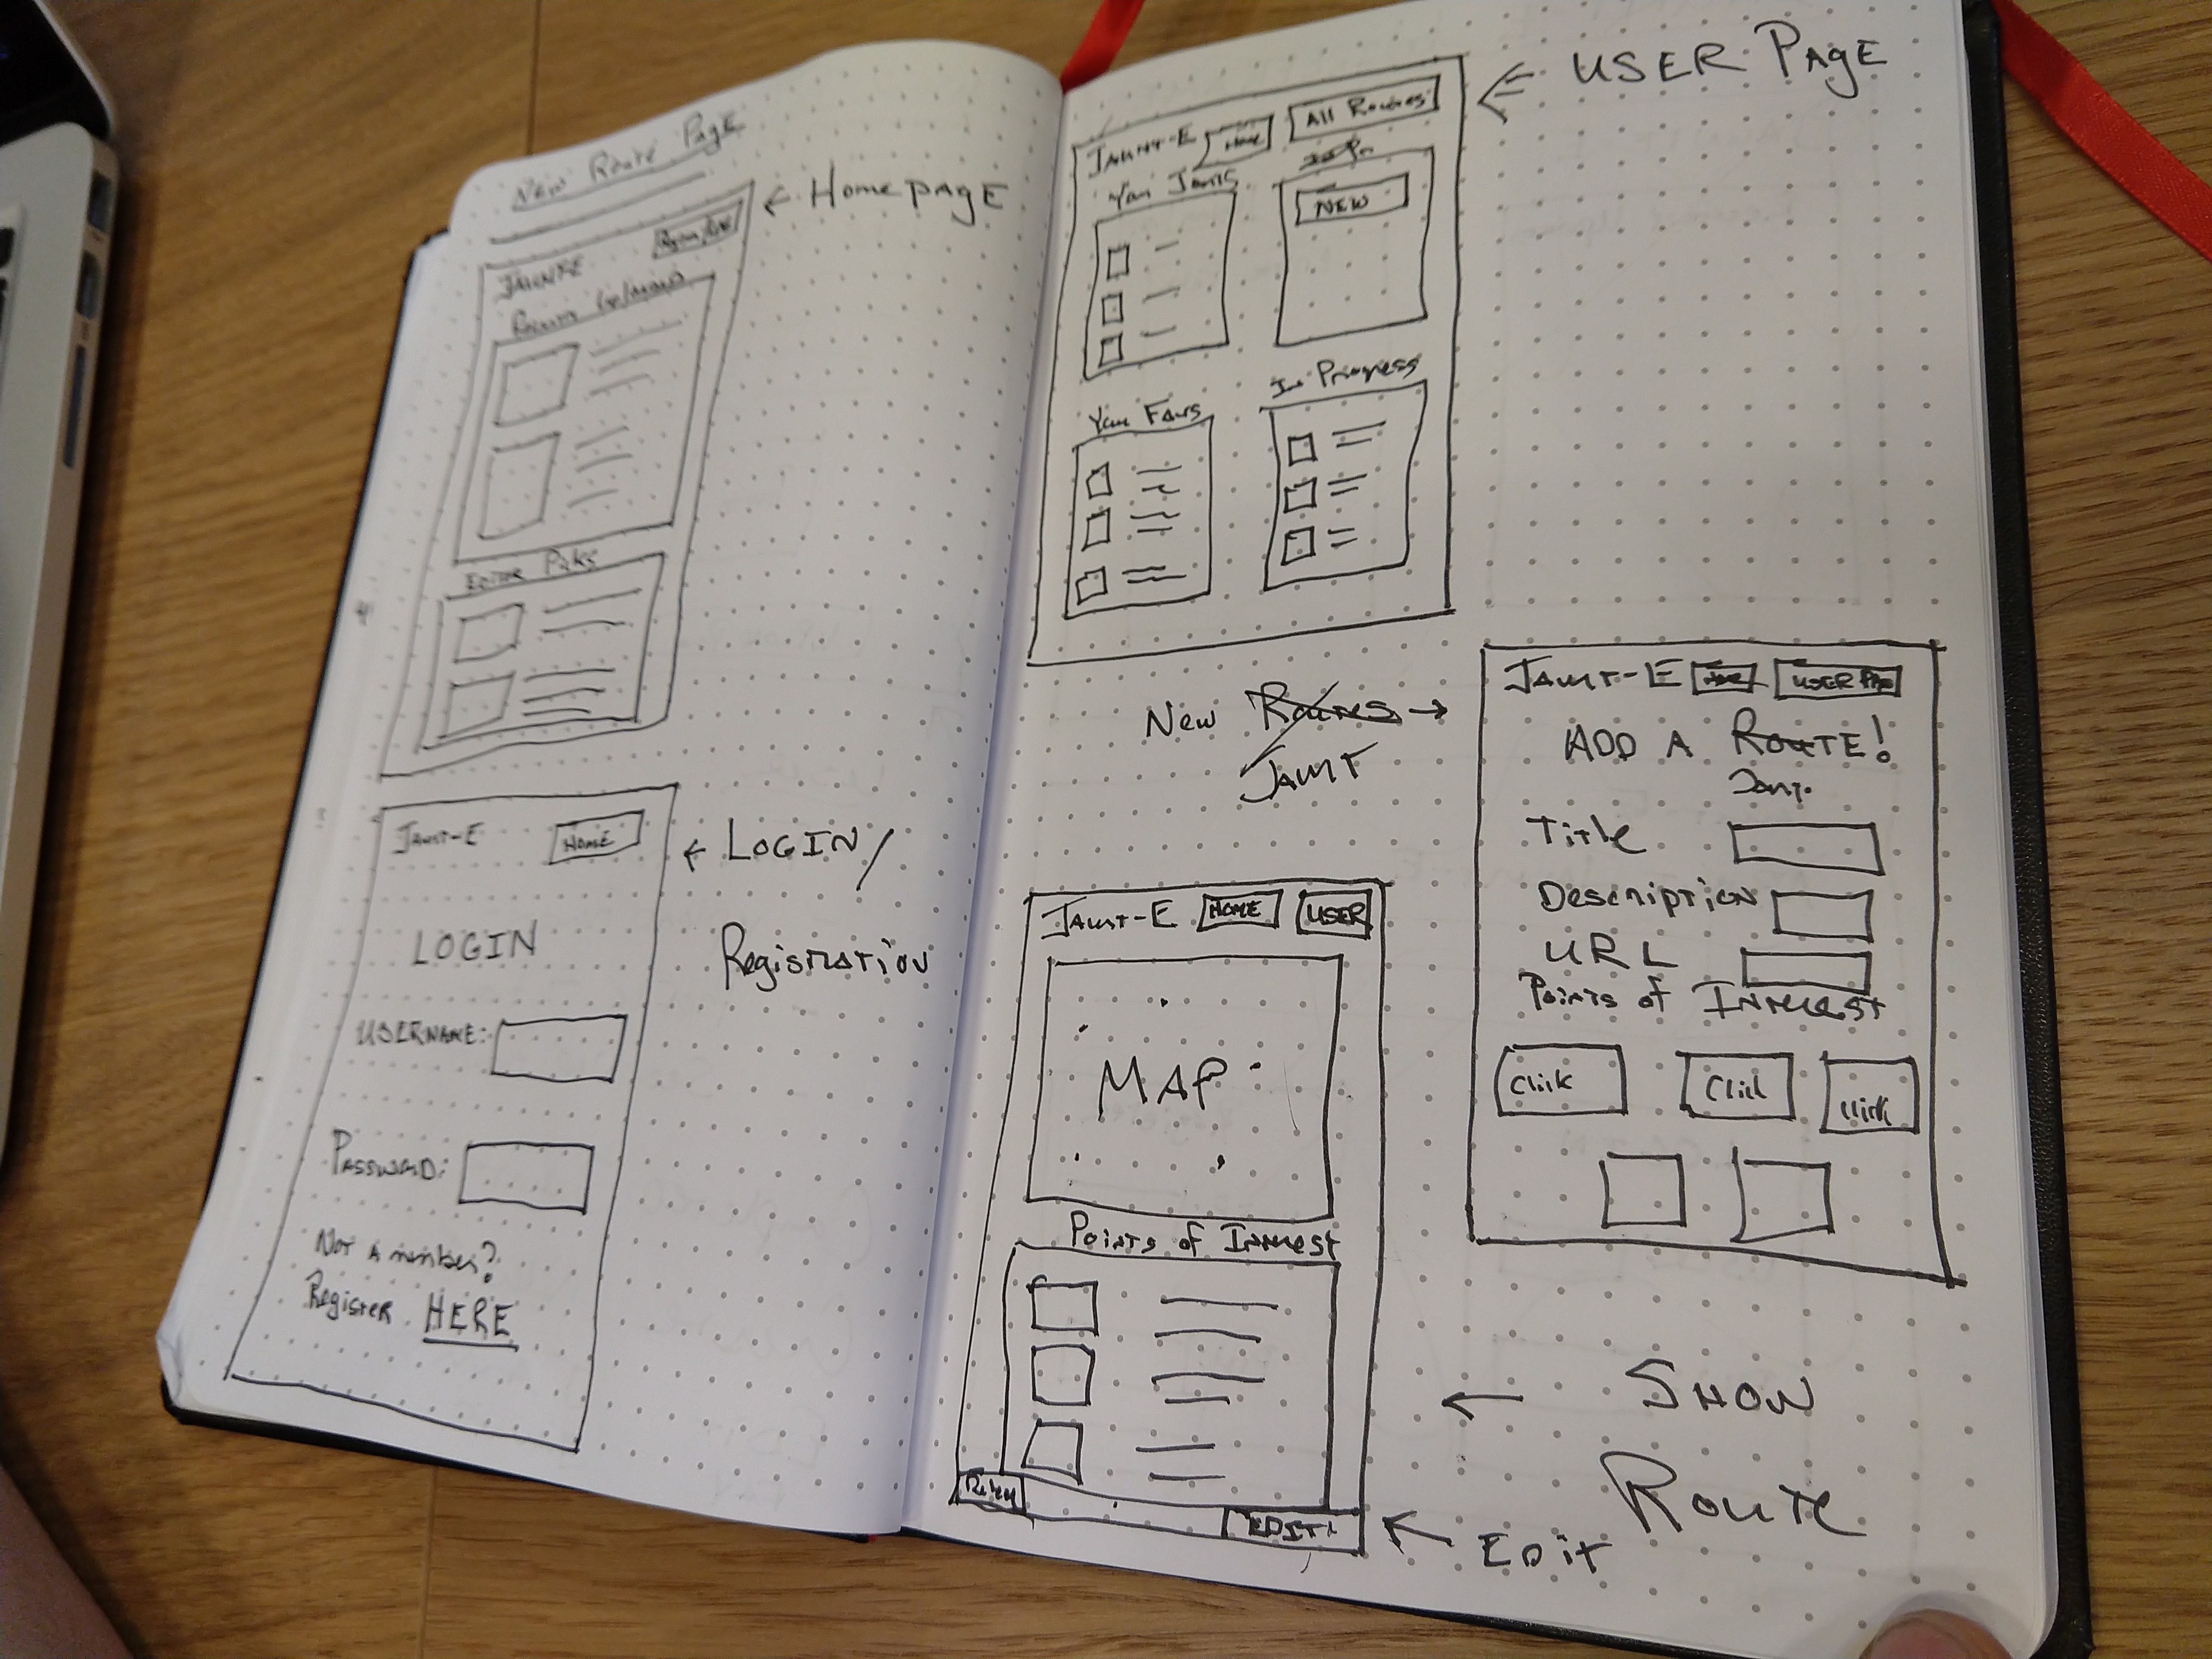 New Route Page
← Home page
JAUNTE
JAUNT-E
HOME
LOGIN
USERNAME:
PASSWORD:
Not a member?
Register HERE
← LOGIN/
Registration
JAUNT-E
Home
All Routes
You Jaunts
NEW
You Favs
In Progress
← USER PAGE
New Routes →
JAUNT
JAUNT-E
HOME
USER
MAP
Points of Interest
EDIT
← SHOW
Route
← EDIT
JAUNT-E
ADD A ROUTE!
Jaunt
Title
Description
URL
Points of Interest
Click
Click
Click